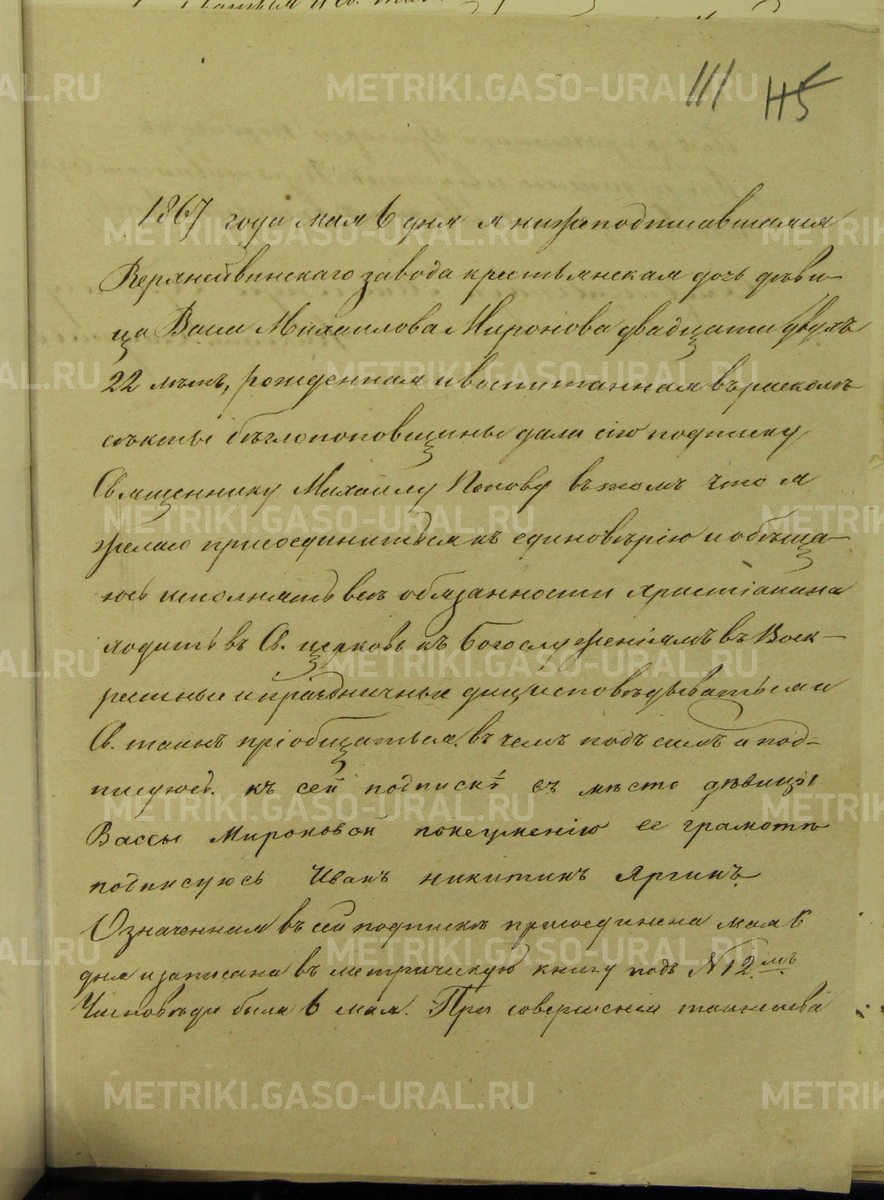 111 115
1867 года мая 6 дня я нижеподписавшаяся
Верхнейвинскаго завода крестьянская дочь дѣви-
ца Васса Михайлова Миронова двадцати двухъ
22 лѣтъ, рожденная и воспитанная въ расколѣ
сѣкты бѣглопоповщины дала сію подписку
Священнику Михайлу Попову въ томъ что я
желаю присоединиться къ единовѣрію и обѣща-
юсь исполнять всѣ обязанности христіанина
ходить въ Св. церковь къ Богослуженіямъ въ Воск-
ресные и праздничные дни, исповѣдываться и
Св. таинъ пріобщаться. въ чемъ подъ симъ и под-
писуюсь. къ сей подпискѣ въ мѣсто дѣвицы
Вассы Мироновой понеумению ее грамотѣ
подписуюсь Иванъ никитинъ Яргинъ.
Означенная въ сей подпискѣ присоединена мая 6
дня и записана въ метрическую книгу подъ № 12мъ
У исповѣди была 6 мая. При совершеніи таинства
METRIKI.GASO-URAL.RU